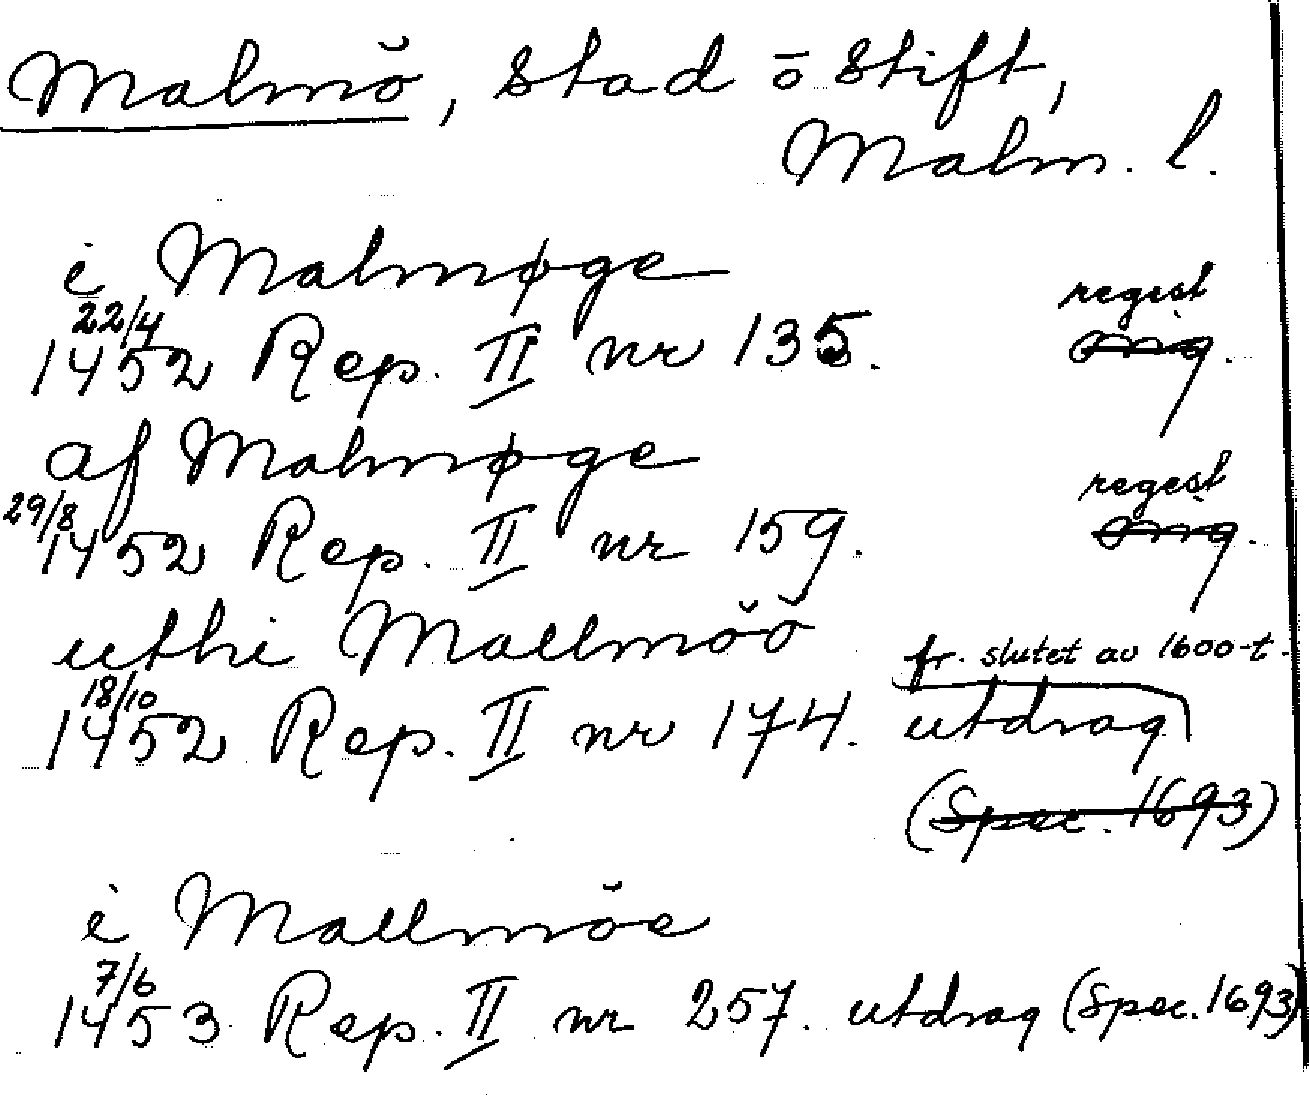 Malmö, stad o stift,
Malm. l.
i Malmøge
regest
22/4 1452 Rep. II nr 135. orig.
af Malmøge
regest
29/8 1452 Rep. II nr 159. orig.
uthi Mallmöö
fr. slutet av 1600-t.
18/10 1452 Rep. II nr 174. utdrag
(Spec. 1693)
i Mallmöe
7/6 1453 Rep. II nr 257. utdrag (Spec. 1693)